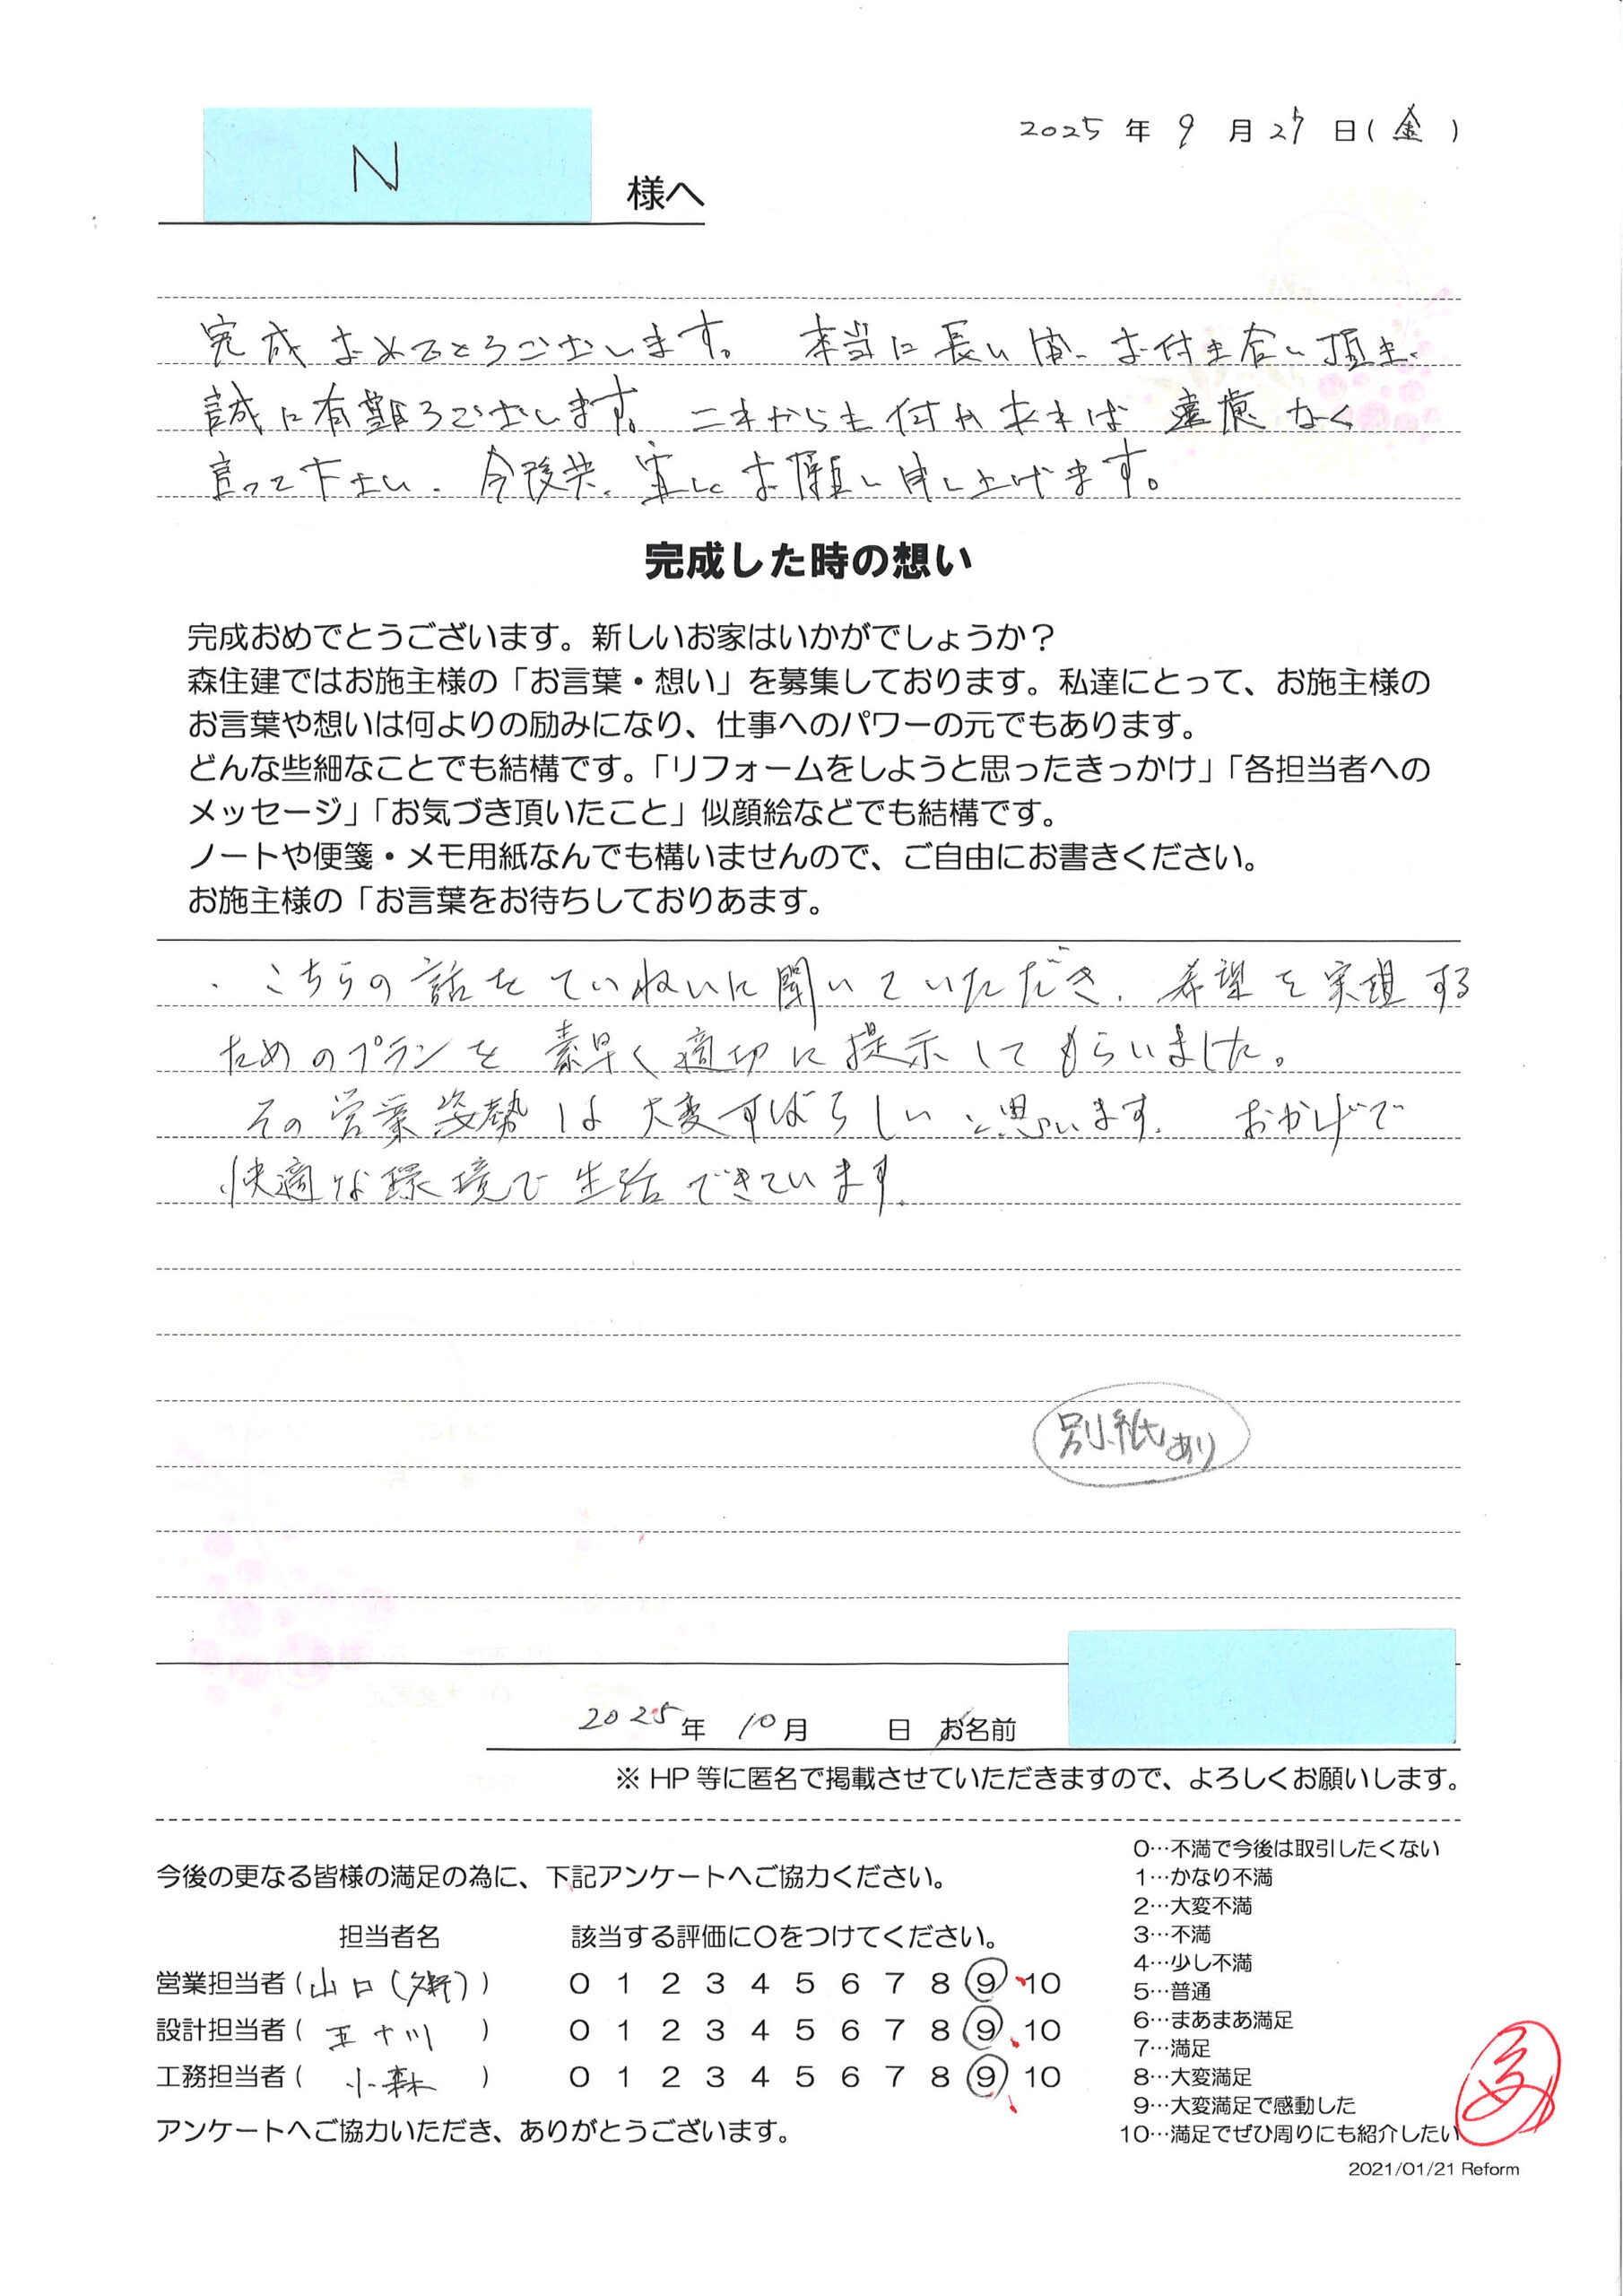 2025年9月27日(金)
N 様へ
完成おめでとうございます。本当に長い間、お付き合い頂き、
誠に有難うございます。これからも何か有れば遠慮なく
言って下さい。今後共、宜しくお願い申し上げます。
完成した時の想い
完成おめでとうございます。新しいお家はいかがでしょうか？
森住建ではお施主様の「お言葉・想い」を募集しております。私達にとって、お施主様の
お言葉や想いは何よりの励みになり、仕事へのパワーの元でもあります。
どんな些細なことでも結構です。「リフォームをしようと思ったきっかけ」「各担当者への
メッセージ」「お気づき頂いたこと」似顔絵などでも結構です。
ノートや便箋・メモ用紙なんでも構いませんので、ご自由にお書きください。
お施主様の「お言葉をお待ちしておりあます。
・こちらの話をていねいに聞いていただき、希望を実現する
ためのプランを素早く適切に提示してもらいました。
その営業姿勢は大変すばらしいと思います。おかげで
快適な環境で生活できています。
別紙あり
2025年 10月 日 お名前
※HP等に匿名で掲載させていただきますので、よろしくお願いします。
今後の更なる皆様の満足の為に、下記アンケートへご協力ください。
担当者名 該当する評価に○をつけてください。
営業担当者(山口( )) 0 1 2 3 4 5 6 7 8 9 10
設計担当者(五十川) 0 1 2 3 4 5 6 7 8 9 10
工務担当者(小森) 0 1 2 3 4 5 6 7 8 9 10
アンケートへご協力いただき、ありがとうございます。
0…不満で今後は取引したくない
1…かなり不満
2…大変不満
3…不満
4…少し不満
5…普通
6…まあまあ満足
7…満足
8…大変満足
9…大変満足で感動した
10…満足でぜひ周りにも紹介したい
2021/01/21 Reform